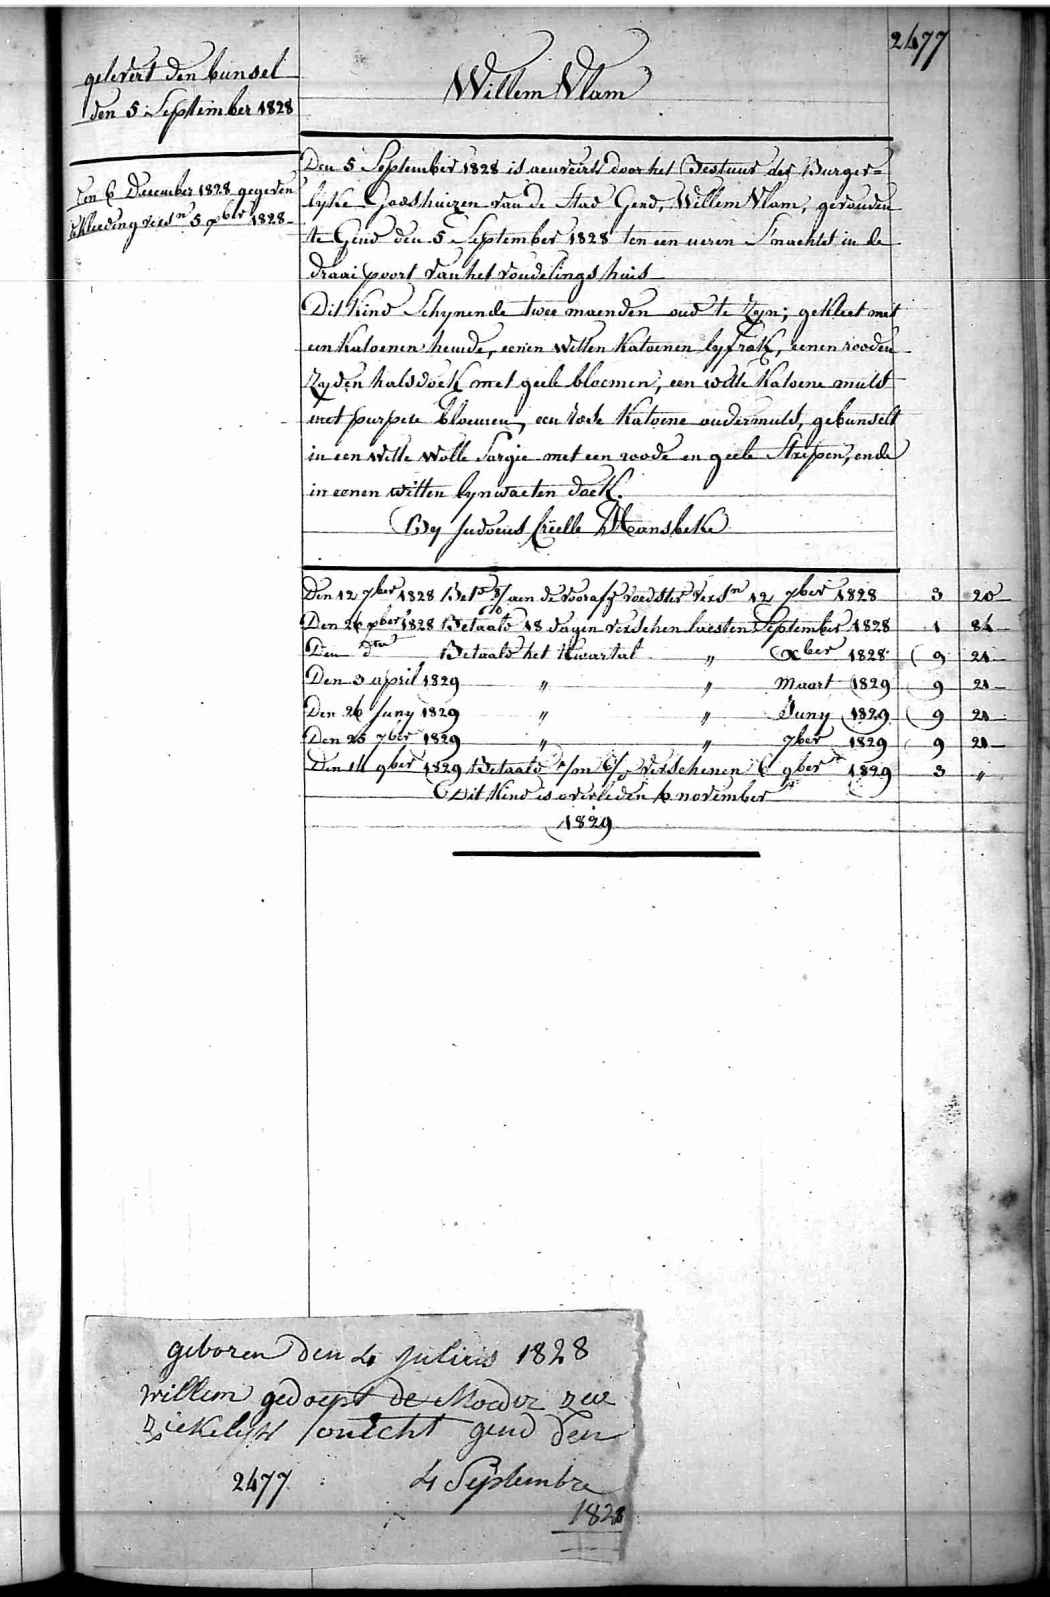 2477
gelevert den bunsel
den 5 September 1828
Den 6 December 1828 gegeven
de kleeding versn 5 xber 1828
Willem Vlam
Den 5 September 1828 is aenveirt door het Bestuur der Burger=
lyke Godshuizen van de Stad Gend, Willem Vlam, gevonden
te Gend den 5 September 1828 ten een ueren S'nachts in de
draai poort van het vondelings huis
Dit kind Schynende twee maenden oud te Zyn; gekleet met
een katoenen hemde, eenen Witten katoenen lyfrok, eenen rooden
Zyden halsdoek met geele bloemen, een witte katoene muts
met purpere bloemen, een katoene ondermuts, gebunselt
in een Witte Wolle Sargie met een roode en geele Strepen, ende
in eenen witten lynwaeten doek.
By Judocus Crielle Hansbeke
Den 12 7ber 1828 Bet aen de voorafg voedster versn 12 7ber 1828 3 20
Den 26 xber 1828 Betaald 18 dagen verschenen laesten September 1828 1 84
Den dto Betaald het Kwartal " xber 1828 9 21
Den 3 april 1829 " " Maart 1829 9 21
Den 26 Juny 1829 " " Juny 1829 9 21
Den 25 7ber 1829 " " 7ber 1829 9 21
Den 14 9ber 1829 Betaald verschenen 6 9ber 1829 3 "
Dit Kind is overleden 6 november
1829
geboren den 4 Julius 1828
willem gedoept de Moeder zeer
ziekelyk onecht gend den
2477 4 Septembre
1828